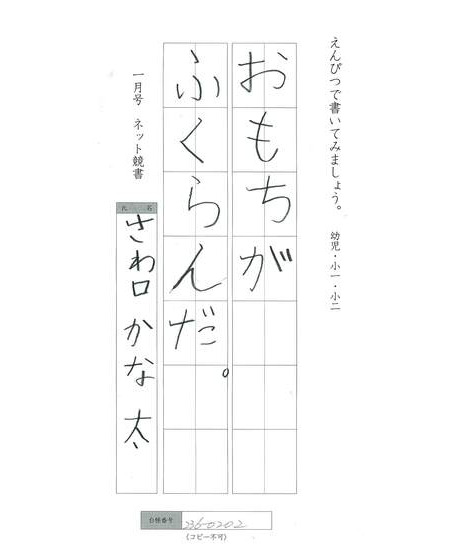 えんぴつで書いてみましょう。 幼児・小一・小二
おもちが
ふくらんだ。
一月号 ネット競書
氏 名
さわ口 かな 太
台帳番号 236-0202
(コピー不可)